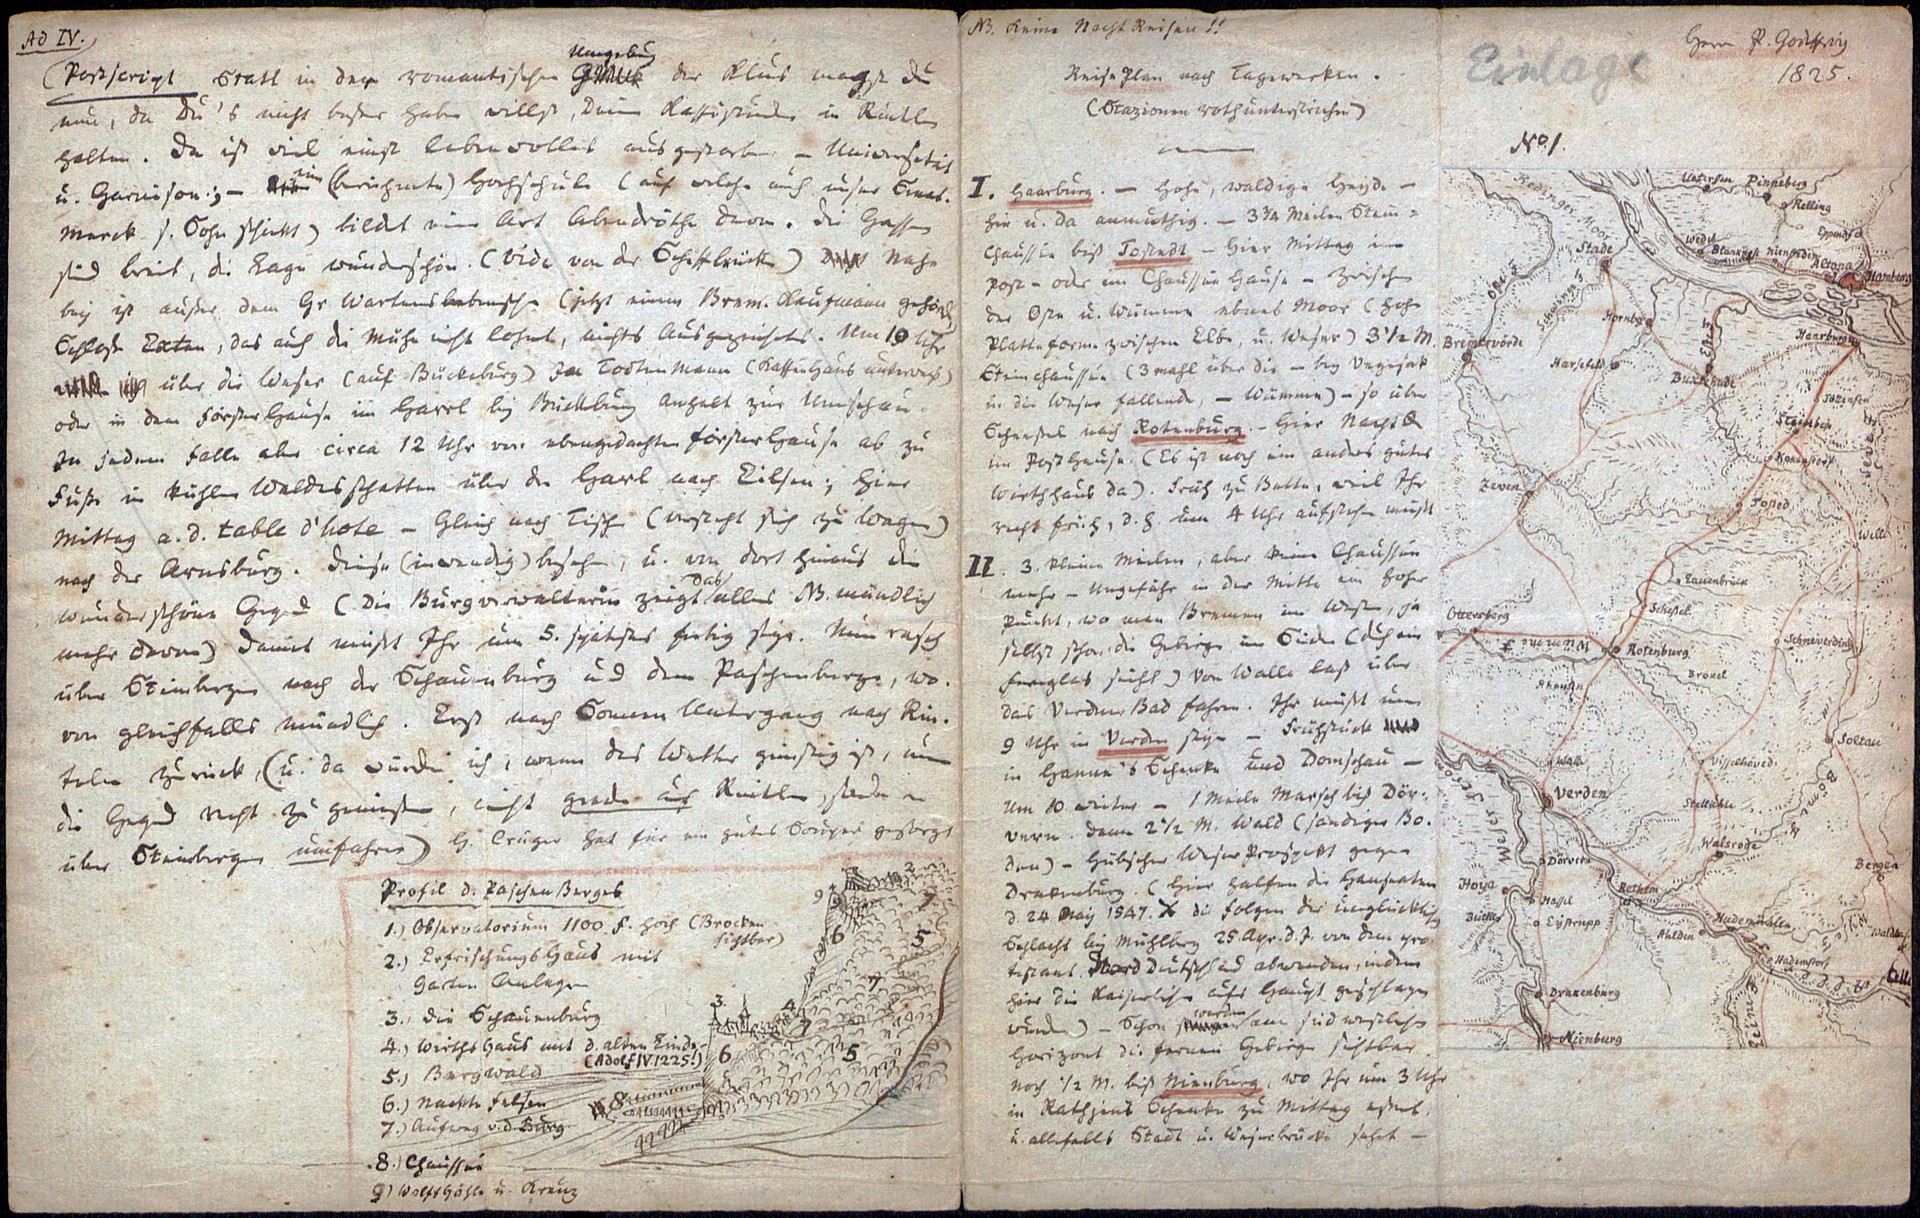 Ad IV.
(Postscript Statt in der romantischen Umgebung der Klus magst Du
nun, da Du's nicht besser haben willst, Deine Rasttstunden in Rinteln
halten. Da ist viel einst lebenvolles ausgestorben – Universität
u. Garnison; – eine (berühmte) Hochschule (auf welche auch unser
s. Sohn schickt) bildet eine Art Abendröthe davon. Die Gassen
sind breit, die Lage wunderschön. (Vide von der Schiffbrücke) Nahe
bey ist außer dem Gr (jetzt einem Brem. Kaufmann gehörd)
Schlosse Exten, das auch die Mühe nicht lohnt, nichts Ausgezeichnetes. Um 10 Uhr
über die Weser (auf Bückeburg) Im Todtenmann (Kaffeehaus unterwegs)
oder in dem Försterhause im Harrl bey Bückeburg Anhalt zur Umschau
In jedem Falle aber circa 12 Uhr von ebengedachten Försterhause ab zu
Fuße in kühlen Waldesschatten über den Harrl nach Eilsen; Hier
Mittag a. d. table d'hote – Gleich nach Tische (versteht sich zu Wagen)
nach der Arnsburg. Diese (inwendig) besehen, u. von dort hinaus die
wunderschöne Gegend (Die Burgverwalterin zeigt das alles NB. mündlich
mehr davon) Damit müßt Ihr um 5. spätstens fertig seyn. Nun rasch
über Steinbergen nach der Schauenburg und dem Paschenberge, wo-
von gleichfalls mündlich. Erst nach Sonnen Untergang nach Rin-
teln zurück, (u. da würde ich, wenn das Wetter günstig ist, um
die Gegend recht zu geniessen, nicht grade aus Rinteln, sondern
über Steinbergen umfahren) H. Crüger hat für ein gutes Souper gesorgt
Profil d. Paschen Berges
1.) Observatorium 1100. F. hoch (Brocken
sichtbar)
2.) Erfrischungs Haus mit
Garten Anlagen
3.) die Schauenburg
4.) Wirthshaus mit d. alten Linde
(Adolf IV. 1225!)
5.) Burgwald
6.) Nackte Felsen
7.) Aufweg v. d. Burg
8.) Chaussee
9) Wolfshöhle u. Kreuz
1
2
9
6
7
5
7
3
4
7
6
5
8
NB. Keine Nacht Reisen!!
Reise Plan nach Tagewerken.
(Stazionen roth unterstrichen)
I. Haarburg. – Hohe, waldige Heyde –
hie u. da anmuthig. – 3¾ Meilen Stein-
chaussee bis Tostedt – Hier Mittag im
Post- oder im Chaussee Hause – Zwischen
der Oste u. Wümme ebnes Moor (Hohe
Platteforme zwischen Elbe, u. Weser) 3½ M.
Steinchaussee (3 mahl über die – bey Vegesak
in die Weser fallende, – Wümme) – so über
Scheessel nach Rotenburg. – Hier Nacht
im Posthause. (Es ist noch ein andres gutes
Wirthhaus da). Früh zu Bette, weil Ihr
recht früh, d. h. um 4 Uhr aufstehen müßt
II. 3. kleine Meilen, aber keine Chaussee
mehr – Ungefähr in der Mitte ein hoher
Punkt, wo man Bremen im Westen, ja
selbst schon die Gebirge im Süden (durch ein
Fernglas sieht) Von Walle laß über
das Verdener Bad fahren. Ihr müßt um
9 Uhr in Verden seyn – Frühstück
in Schenke und Domschau –
Um 10 weiter – 1 Meile Marsch bis Dör-
vern. dann 2½ M. Wald (sandiger Bo-
den) – Hübscher Weser Prospekt gegen
Drakenburg. (Hier halfen die Hanseaten
d. 24 May 1547. die Folgen der unglücklichen
Schlacht bey Mühlberg 25 Apr. d. J. von dem pro-
testant. Nord Deutschland abwenden, indem
hier die Kaiserlichen aufs Haupt geschlagen
wurden) – Schon werden am südwestlichen
Horizont die fernen Gebirge sichtbar.
noch ½ M. bis Nienburg, wo Ihr um 3 Uhr
in Schenke zu Mittag esset.
u. allenfalls Stadt u. Weserbrücke seht –
Einlage
Herrn P. Godeffroy
1825.
No. 1.
Uetersen
Pinneberg
Relling
Eppendf
Wedel
Blankense
Nienstedten
Altona
Hamburg
Kedinger Moor
Stade
Oste Fl.
Schwinge Fl.
Hornbg
Este Fl.
Haarburg
Bremervörde
Harsefeld
Buxtehude
Zeven
Tosted
Welle
Lauenbrück
Scheßel
Ottersberg
Wümme Fl.
Rotenburg
Schneverding
Ahausen
Brokel
Soltau
Walle
Visselhövede
Verden
Stellichte
Walsrode
Weser
Dörvern
Bergen
Rethem
Hoya
Hassel
Bücken
Eystrupp
Hudemühlen
Ahlden
Hademstorf
Drakenburg
Nienburg
Leine Fl.